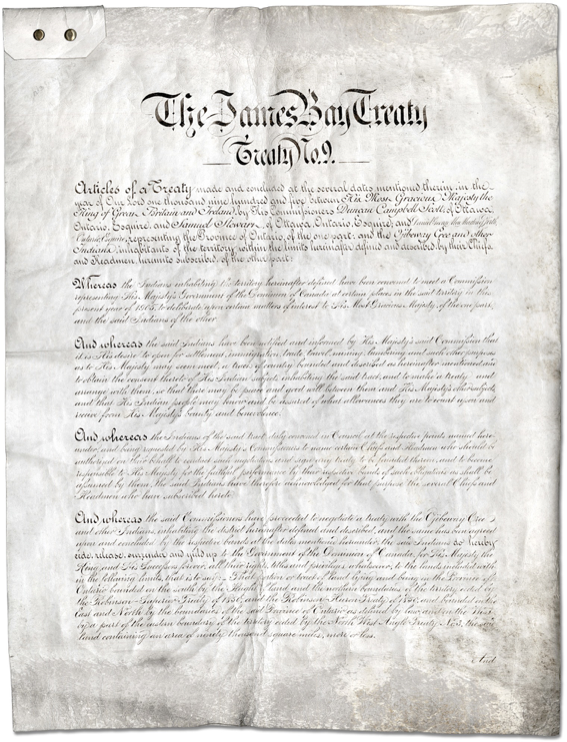 The James Bay Treaty
Treaty No. 9.
Articles of a Treaty made and concluded at the several dates mentioned therein, in the
year of Our Lord one thousand nine hundred and five between His Most Gracious Majesty the
King of Great Britain and Ireland, by His Commissioners Duncan Campbell Scott, of Ottawa,
Ontario, Esquire, and Samuel Stewart, of Ottawa, Ontario, Esquire; and
representing the Province of Ontario, of the one part; and the Ojibeway, Cree and other
Indians, inhabitants of the territory within the limits hereinafter defined and described, by their Chiefs
and Headmen hereunto subscribed, of the other part:
Whereas the Indians inhabiting the territory hereinafter defined have been convened to meet a Commission
representing His Majesty's Government of the Dominion of Canada at certain places in the said territory in this
present year of 1905, to deliberate upon certain matters of interest to His Most Gracious Majesty, of the one part,
and the said Indians of the other.
And whereas the said Indians have been notified and informed by His Majesty's said Commission that
it is His desire to open for settlement, immigration, trade, travel, mining, lumbering and such other purposes
as to His Majesty may seem meet, a tract of country bounded and described as hereinafter mentioned, and
to obtain the consent thereto of His Indian subjects inhabiting the said tract, and to make a treaty and
arrange with them, so that there may be peace and good will between them and His Majesty's other subjects,
and that His Indian people may know and be assured of what allowances they are to count upon and
receive from His Majesty's bounty and benevolence.
And whereas the Indians of the said tract, duly convened in Council at the respective points named here-
under, and being requested by His Majesty's Commissioners to name certain Chiefs and Headmen who should be
authorized on their behalf to conduct such negotiations and sign any treaty to be founded thereon, and to become
responsible to His Majesty for the faithful performance by their respective bands of such obligations as shall be
assumed by them, the said Indians have therefore acknowledged for that purpose the several Chiefs and
Headmen who have subscribed hereto.
And whereas the said Commissioners have proceeded to negotiate a treaty with the Ojibeway, Cree
and other Indians, inhabiting the district hereinafter defined and described, and the same has been agreed
upon and concluded by the respective bands at the dates mentioned hereunder, the said Indians do hereby
cede, release, surrender and yield up to the Government of the Dominion of Canada, for His Majesty the
King and His Successors forever, all their rights, titles and privileges whatsoever, to the lands included with-
in the following limits, that is to say: That portion or tract of land lying and being in the Province of
Ontario, bounded on the south by the Height of Land and the northern boundaries of the territory ceded by
the Robinson-Superior Treaty of 1850, and the Robinson-Huron Treaty of 1850, and bounded on the
East and North by the boundaries of the said Province of Ontario as defined by law, and on the West
by a part of the eastern boundary of the territory ceded by the North West Angle Treaty No. 3; the said
land containing an area of ninety thousand square miles, more or less.
And